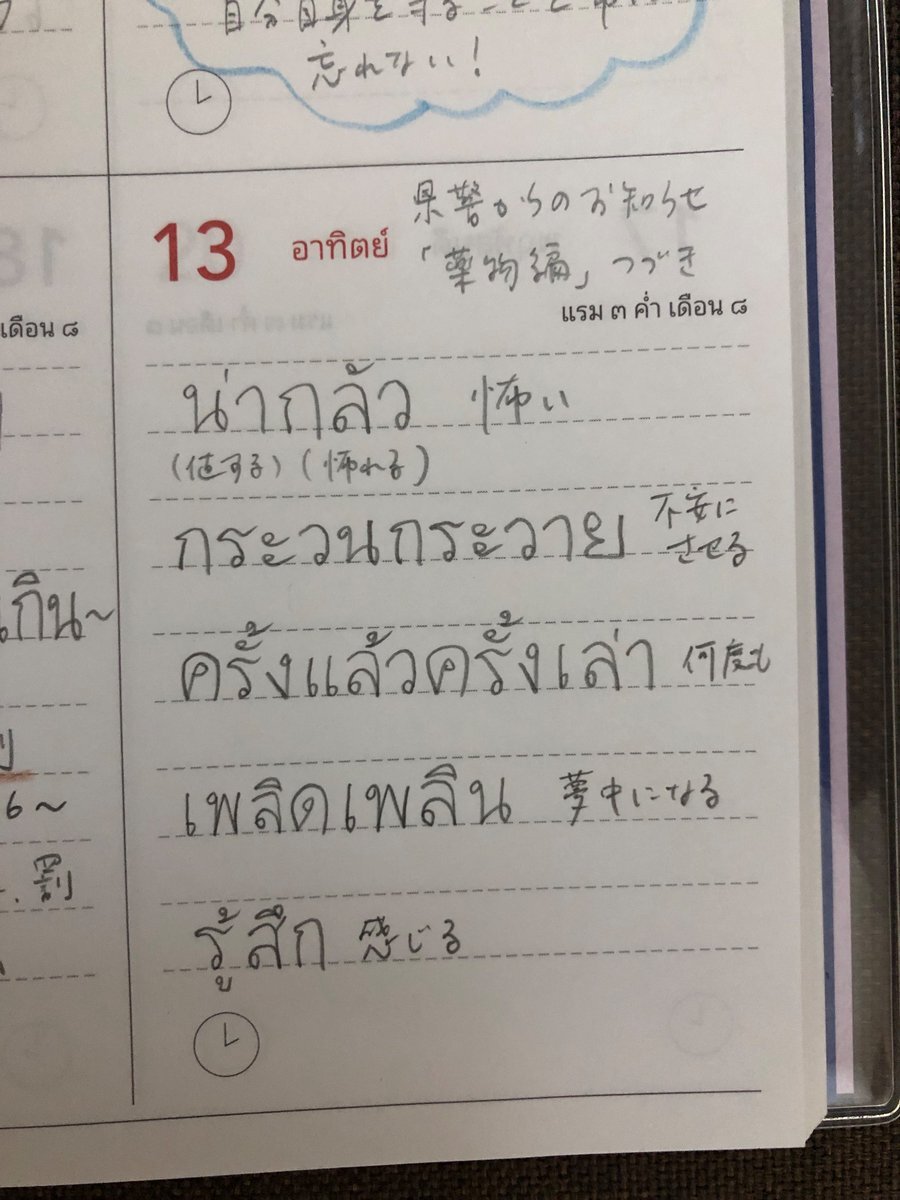 忘れない!
13 อาทิตย์
県警からのお知らせ
「薬物編」つづき
แรม ๓ ค่ำ เดือน ๘
เดือน ๘
น่ากลัว 怖い
(値する)(怖れる)
กระวนกระวาย 不安に
させる
ครั้งแล้วครั้งเล่า 何度も
เกิน~
เพลิดเพลิน 夢中になる
รู้สึก 感じる